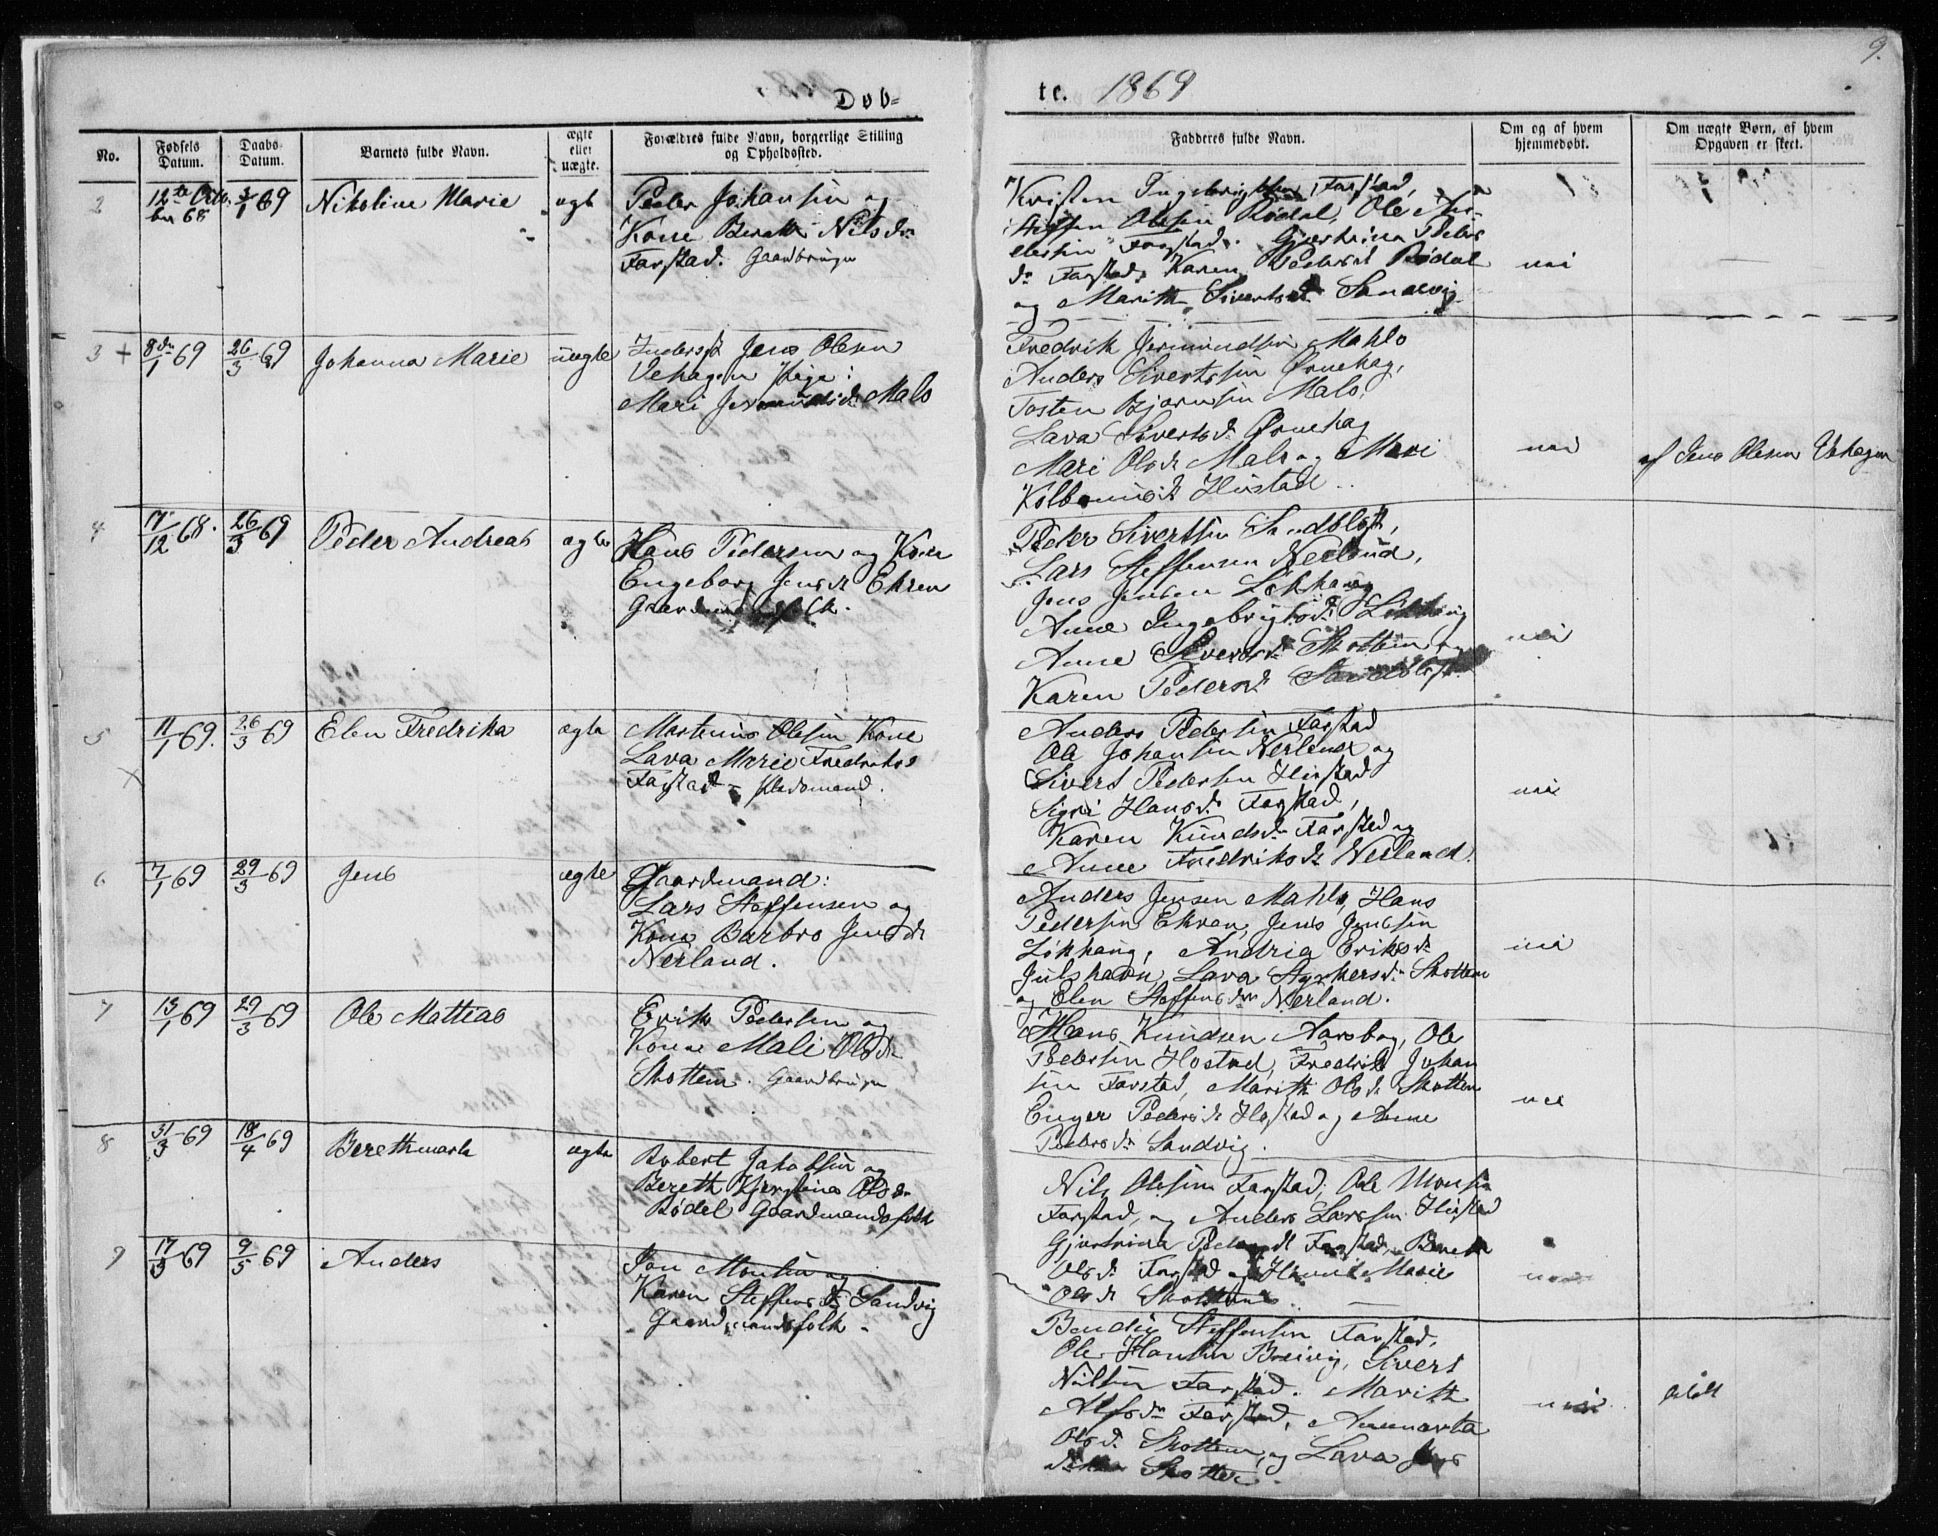 9.
Døb=
te. 1869
No.
Fødsels Datum.
Daabs Datum.
Barnets fulde Navn.
ægte eller uægte.
Forældres fulde Navn, borgerlige Stilling og Opholdssted.
Fadderes fulde Navn.
Om og af hvem hjemmedøbt.
Om uægte Børn, af hvem Opgaven er skeet.
2
12te Octo
ber 68
3/1 69
Nikoline Marie
ægt
Peder Johansen og
Kone Berett Nilsdr
Farstad. Gaardbruger
Kristen Ingebrigtsen Farstad,
Steffen Olesen Rødal, Ole An-
dersen Farstad. Gjertrina Peders
dr Farstad, Karen Pedersdt Rødal
og Marith Sivertsdt Sandvig
nei
3 +
8de/1 69
26/3 69
Johanna Marie
uægte
Inderst Jens Olesen
Vehagen Pige:
Mari Jermundsdt Malo
Fredrik Jermundsen Mahlo
Anders Sivertsen Ørnehag,
Tosten Bjørnsen Malo,
Lava Sivertsd. Ørnehag
Mari Olsdt Malo og Mari
Kolbeinsdt Hustad
nei
af Jens Olesen Vehagen
4
17/12 68.
26/3 69
Peder Andreas
ægte
Hans Pedersen og Kone
Engeborg Jensdt Ekren
Gaardmandsfolk.
Peder Sivertsen Sandblost,
Lars Steffensen Nerland,
Jens Jensen Løkhaug
Anne Ingebrigtsdt Løkhaug
Anne Sivertsdt Skotten og
Karen Pedersdt Sandblost
nei
5
11/1 69.
26/3 69
Elen Fredrika
ægte
Martinus Olesen Kone
Lava Marie Fredriks
Farstad - Pladsmand.
Anders Pedersen Farstad
Ole Johansen Nerland og
Sivert Pedersen Hustad
Sigri Hansdr Farstad,
Karen Knudsdr Farstad og
Anne Fredriksdt Nerland.
nei
6
7/1 69
29/3 69
Jens
ægte
Gaardmand:
Lars Steffensen og
Kone Barbro Jensdt
Nerland.
Anders Jensen Mahlo, Hans
Pedersen Ekren, Jens Jensen
Løkhaug, Andria Eriksdt
Julshavn, Lava Styrkersdr Skotten
og Elen Steffensdr Nerland.
nei
7
13/1 69
29/3 69
Ole Matteas
Erik Pedersen og
Kone Mali Olsdr
Skotten. Gaardbruger
Hans Knudsen Aarsbog, Ole
Pedersen Hostad, Fredrik Johan
sen Farstad, Marith Olsdt Skotten
Enger Pedersdt Hostad og Anne
Pedersdr Sandvig.
nei
8
31/3 69
18/4 69
Berethmarta
ægte
Robert Jakobsen og
Bereth Kjerstina Olsdr
Rødal Gaardmandsfolk
Nils Olesen Farstad, Ole Monsen
Farstad, og Anders Larsen Hustad
Gjertrina Pedersdt Farstad, Beret
Olsdt Farstad og Hanna Marie
Olsdt Skotten
nei
9
17/3 69
9/5 69
Anders
Jon Monsen og
Karen Steffensdt Sandvig
Gaardmandsfolk
Bendix Steffensen Farstad,
Ole Hansen Breivig, Sivert
Nilsen Farstad. Marith
Alfsdr Farstad, Annemarta
Olsd. Skotten, og Lava Jens
datter Skotten
nei